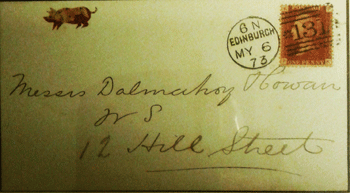 6 N
EDINBURGH
MY 6
73
131
ONE PENNY
Messrs Dalmahoy & Cowan
W S
12 Hill Street